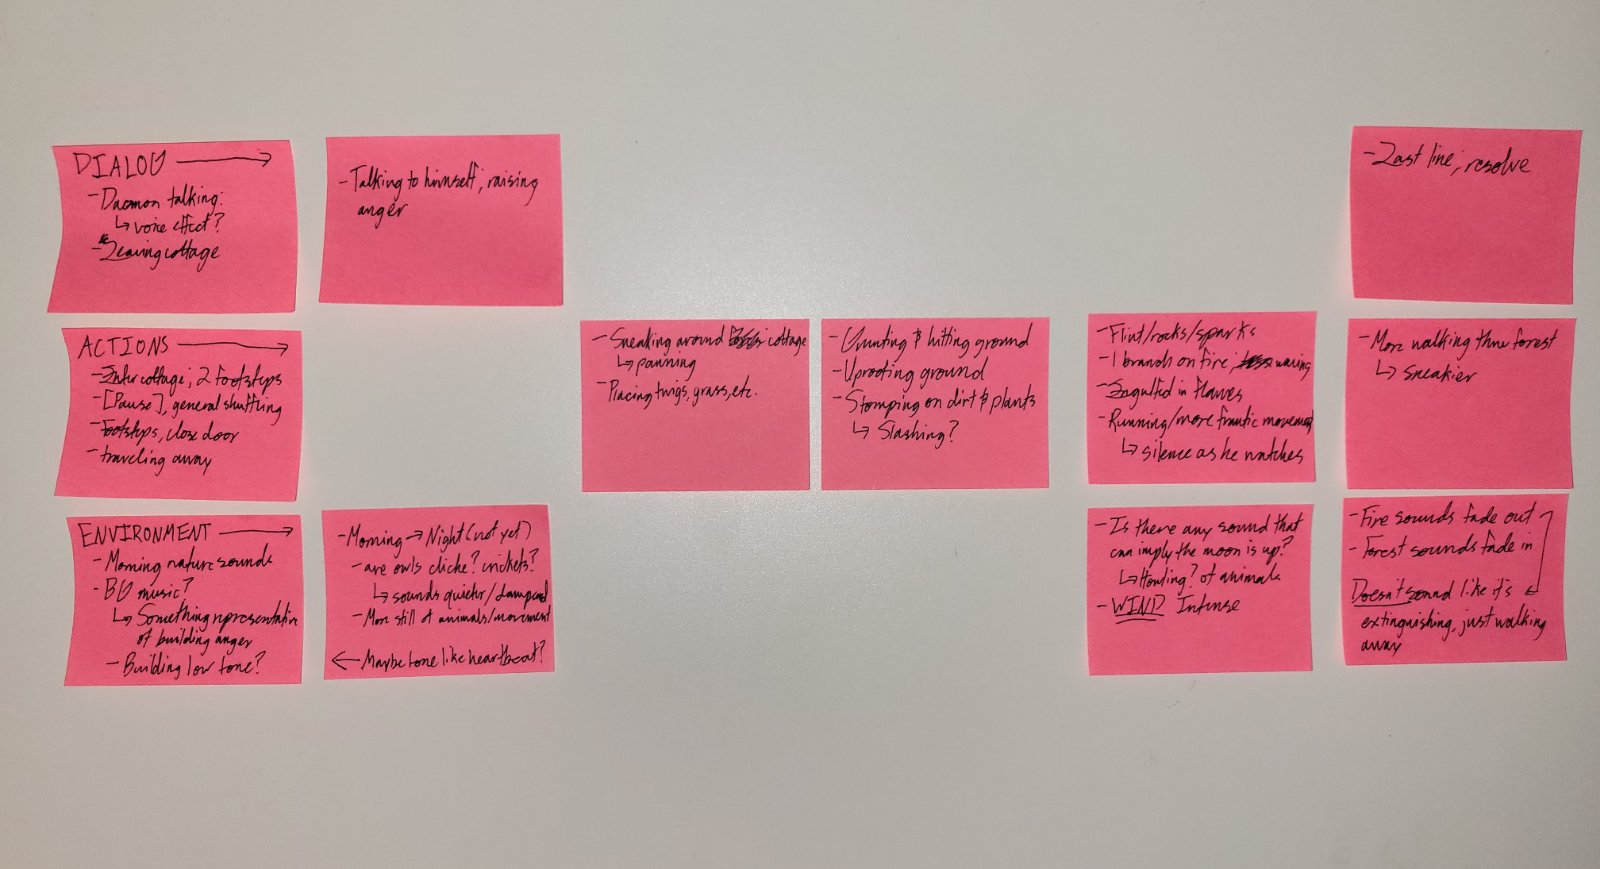 DIALOG →
- Daemon talking:
↳ voice effect?
- Leaving cottage
- Talking to himself, raising
anger
- Last line, resolve
ACTIONS →
- Enter cottage, 2 footsteps
- [Pause], general shuffling
- Footsteps, close door
- traveling away
- Sneaking around cottage
↳ panning
- Placing twigs, grass, etc.
- Grunting & hitting ground
- Uprooting ground
- Stomping on dirt & plants
↳ Slashing?
- Flint/rocks/sparks
- 1 branch on fire, waving
- Engulfed in flames
- Running/more frantic movement
↳ silence as he watches
- More walking thru forest
↳ sneakier
ENVIRONMENT →
- Morning nature sounds
- BG music?
↳ Something representative
of building anger
- Building low tone?
- Morning → Night (not yet)
- are owls cliche? crickets?
↳ sounds quieter/dampened
- More still of animals/movement
← Maybe tone like heartbeat?
- Is there any sound that
can imply the moon is up?
↳ Howling? of animals
- WIND Intense
- Fire sounds fade out
- Forest sounds fade in
Doesn't sound like it's
extinguishing, just walking
away